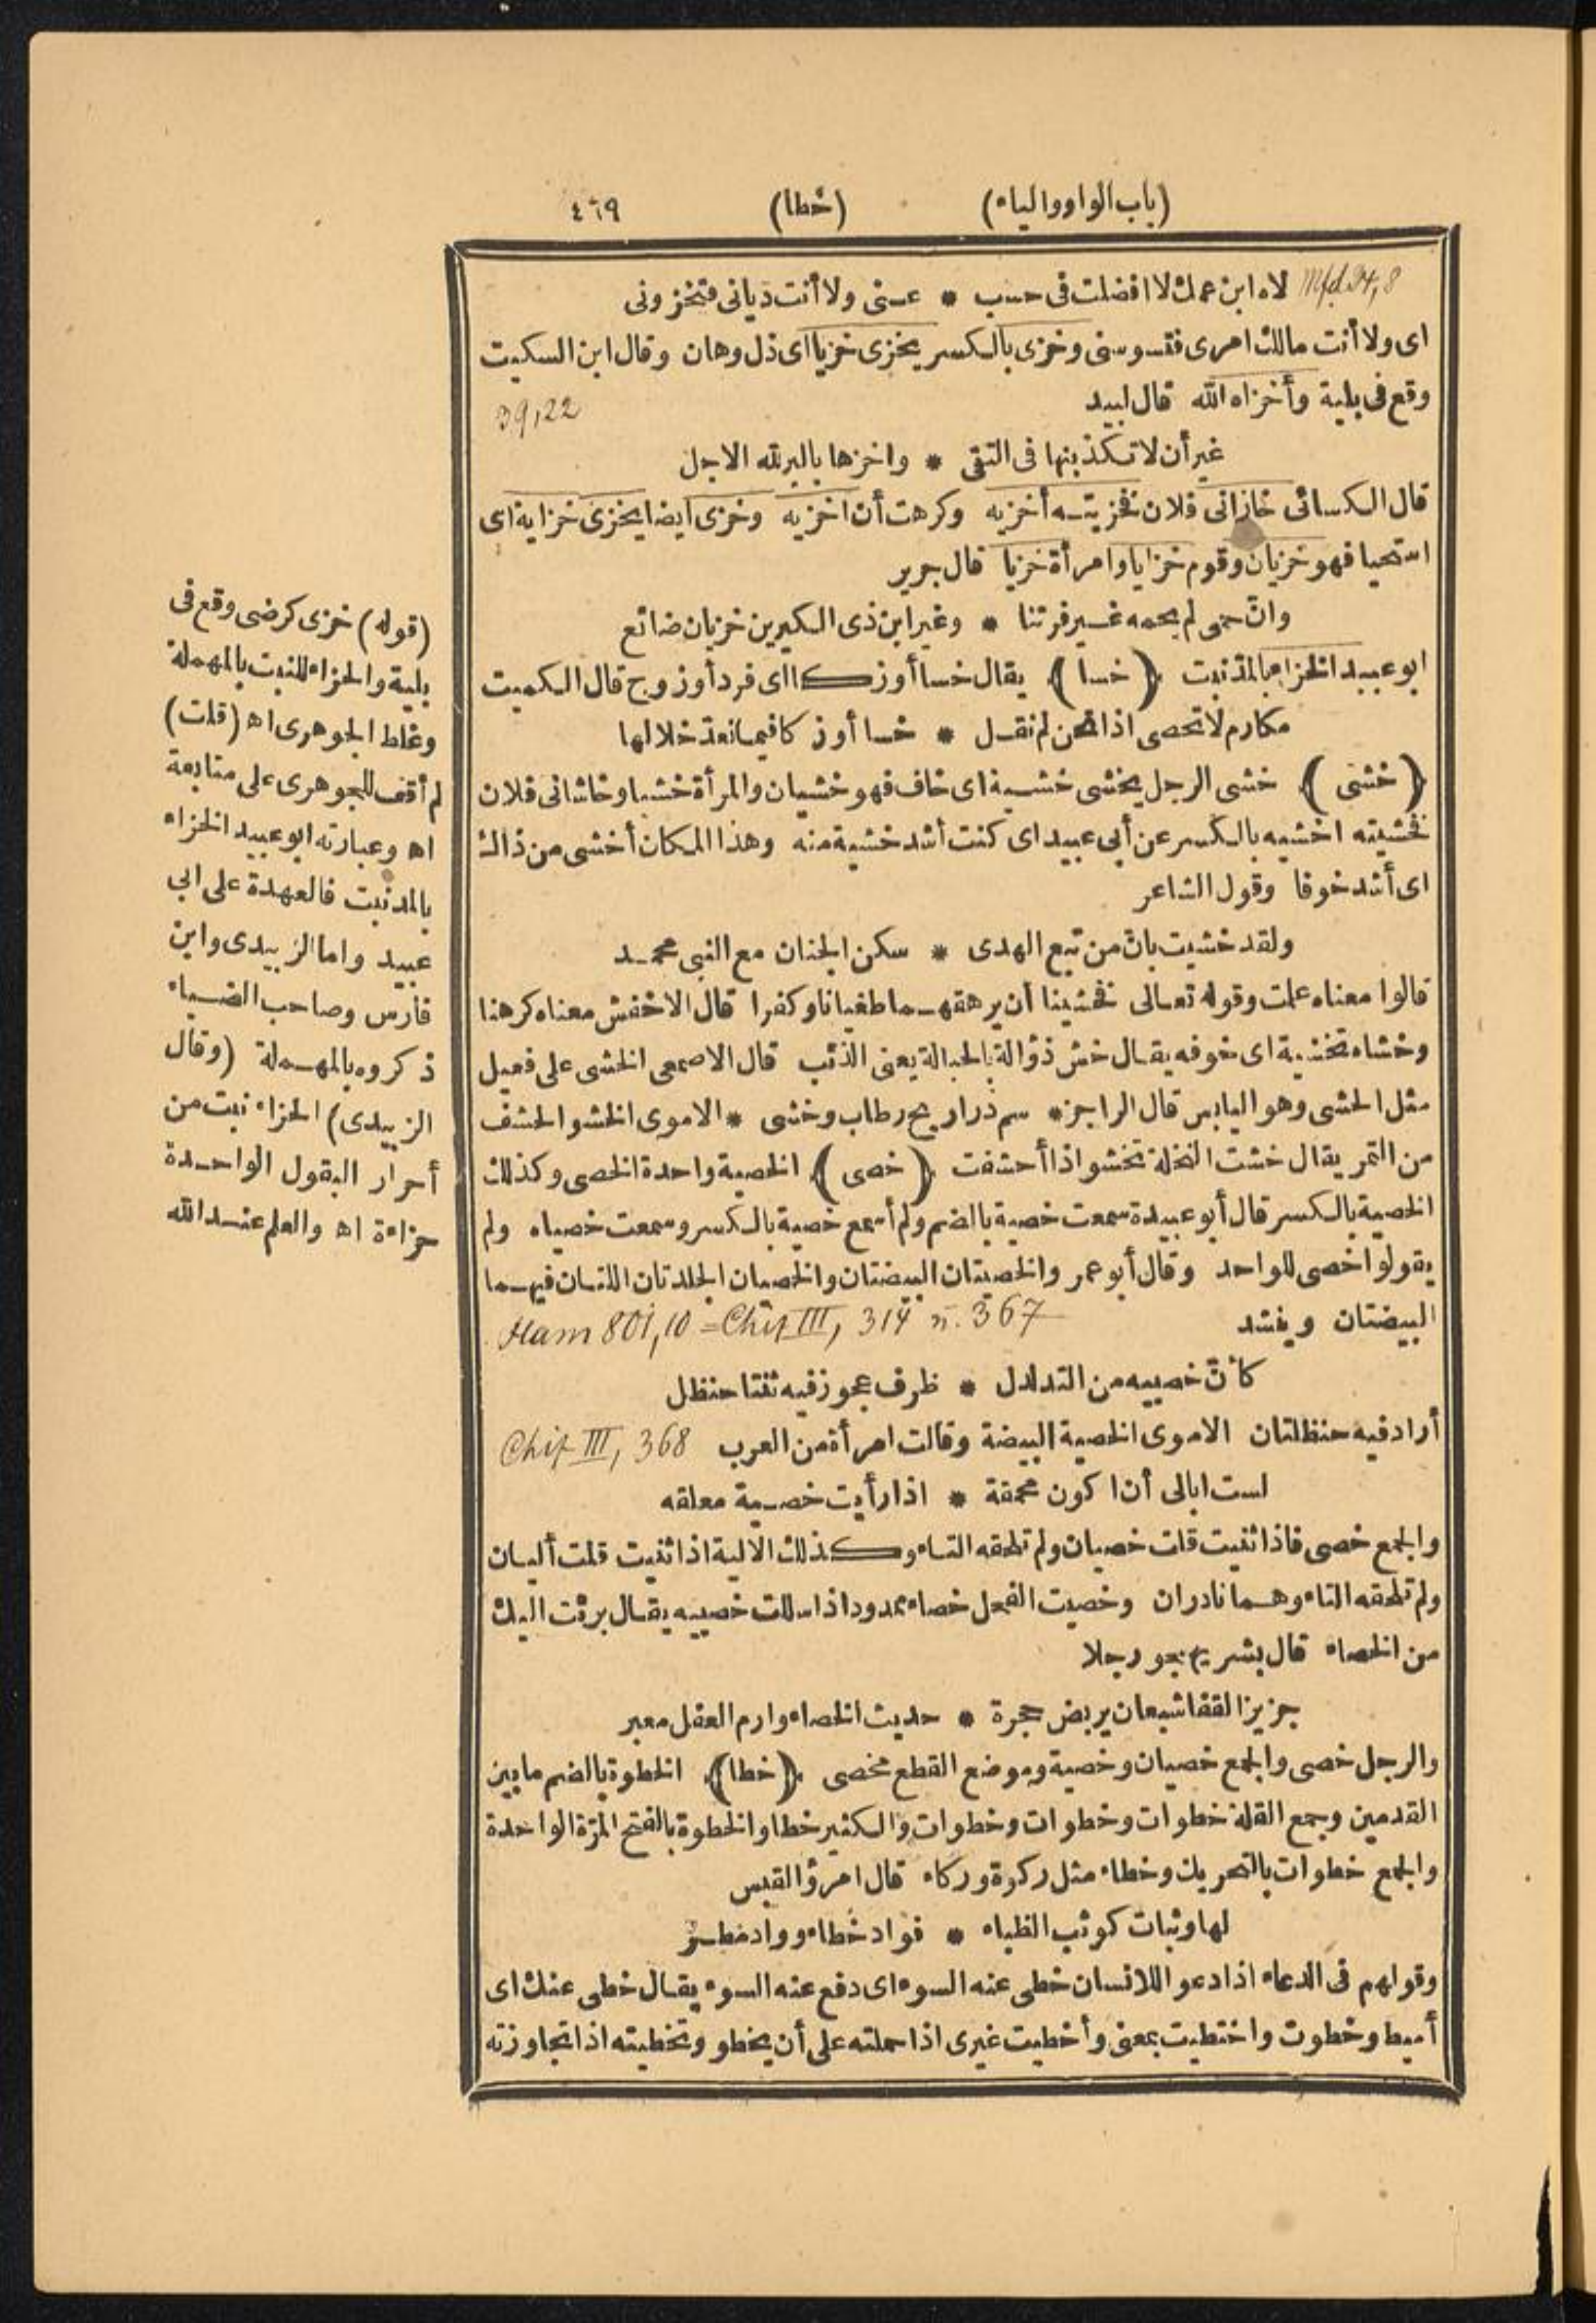 (باب الواو والياء) (خطا) ٤٦٩
Mfd 24,8 لاه ابن عمك لا افضلت فى حسب * عنى ولا أنت ديانى فتخزونى
اى ولا أنت مالك امرى فتسوسنى وخزى بالكسر يخزى خزيا اى ذل وهان وقال ابن السكيت
وقع فى بلية وأخزاه الله قال لبيد 39,22
غير أن لا تكذبنها فى التقى * واخزها بالبر لله الاجل
قال الكسائى خازانى فلان فخزيته أخزيه وكرهت أن اخزيه وخزى أيضا يخزى خزاية اى
استحيا فهو خزيان وقوم خزايا وامرأة خزيا قال جرير
وانّ حمى لم يحمه غير فرتنا * وغير ابن ذى الكيرين خزيان ضائع
ابو عبيد الخزاء بالمد نبت ﴿خسا﴾ يقال خسا أو زكا اى فرد أو زوج قال الكميت
مكارم لا تحصى اذا نحن لم نقل * خسا أو زكا فيما نعد خلالها
﴿خشى﴾ خشى الرجل يخشى خشية اى خاف فهو خشيان والمرأة خشيا وخاشانى فلان
فخشيته اخشيه بالكسر عن أبى عبيد اى كنت أشد خشية منه وهذا المكان أخشى من ذاك
اى أشد خوفا وقول الشاعر
ولقد خشيت بانّ من تبع الهدى * سكن الجنان مع النبى محمد
قالوا معناه علمت وقوله تعالى فخشينا أن يرهقهما طغيانا وكفرا قال الاخفش معناه كرهنا
وخشاه تخشية اى خوفه يقال خش ذؤالة بالحبالة يعنى الذئب قال الاصمعى الخشى على فعيل
مثل الحشى وهو اليابس قال الراجز * سم ذراريح رطاب وخشى * الاموى الخشو الحشف
من التمر يقال خشت النخلة تخشو اذا أحشفت ﴿خصى﴾ الخصية واحدة الخصى وكذلك
الخصية بالكسر قال أبو عبيدة سمعت خصية بالضم ولم أسمع خصية بالكسر وسمعت خصياه ولم
يقولوا خصى للواحد وقال أبو عمرو الخصيتان البيضتان والخصيان الجلدتان اللتان فيهما
البيضتان وينشد Ham 801,10 = Chiz III, 314 n. 367
كأنّ خصييه من التدلدل * ظرف عجوز فيه ثنتا حنظل
أراد فيه حنظلتان الاموى الخصية البيضة وقالت امرأة من العرب Chiz III, 368
لست ابالى أن اكون محمقة * اذا رأيت خصية معلقه
والجمع خصى فاذا ثنيت قلت خصيان ولم تلحقه التاء وكذلك الالية اذا ثنيت قلت أليان
ولم تلحقه التاء وهما نادران وخصيت الفحل خصاء ممدود اذا سللت خصييه يقال برئت اليك
من الخصاء قال بشر يهجو رجلا
جزيز القفا شبعان يربض حجرة * حديث الخصاء وارم العفل معبر
والرجل خصى والجمع خصيان وخصية وموضع القطع مخصى ﴿خطا﴾ الخطوة بالضم ما بين
القدمين وجمع القلة خطوات وخطوات وخطوات والكثير خطا والخطوة بالفتح المرّة الواحدة
والجمع خطوات بالتحريك وخطاء مثل ركوة وركاء قال امرؤ القيس
لها وثبات كوثب الظباء * فواد خطاء وواد مطر
وقولهم فى الدعاء اذا دعوا للانسان خطى عنه السوء اى دفع عنه السوء يقال خطى عنك اى
أميط وخطوت واختطيت بمعنى وأخطيت غيرى اذا حملته على أن يخطو وتخطيته اذا تجاوزته
(قوله) خزى كرضى وقع فى
بلية والخزاء للنبت بالمهملة
وغلط الجوهرى اه (قلت)
لم أقف للجوهرى على متابعة
اه وعبارته ابو عبيد الخزاء
بالمد نبت فالعهدة على ابى
عبيد واما الزبيدى وابن
فارس وصاحب الضياء
ذكروه بالمهملة (وقال
الزبيدى) الحزاء نبت من
أحرار البقول الواحدة
حزاءة اه والعلم عند الله